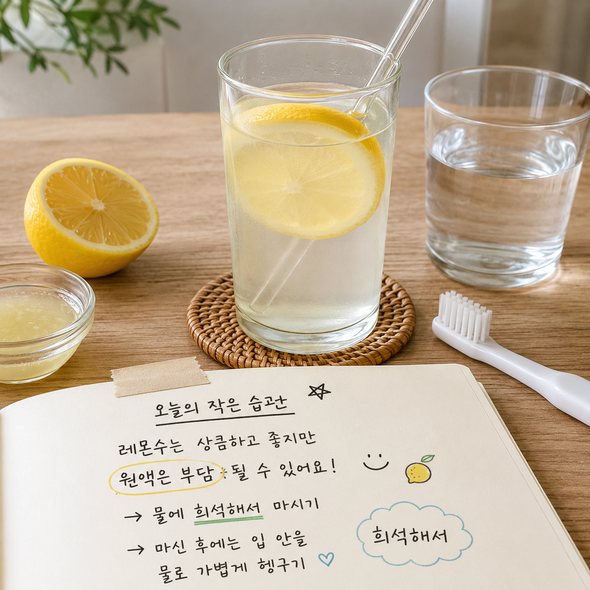 오늘의 작은 습관
레몬수는 상큼하고 좋지만
원액은 부담될 수 있어요!
→ 물에 희석해서 마시기
→ 마신 후에는 입 안을
물로 가볍게 헹구기
희석해서